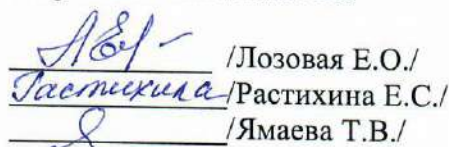 /Лозовая Е.О./
Растихина /Растихина Е.С./
/Ямаева Т.В./